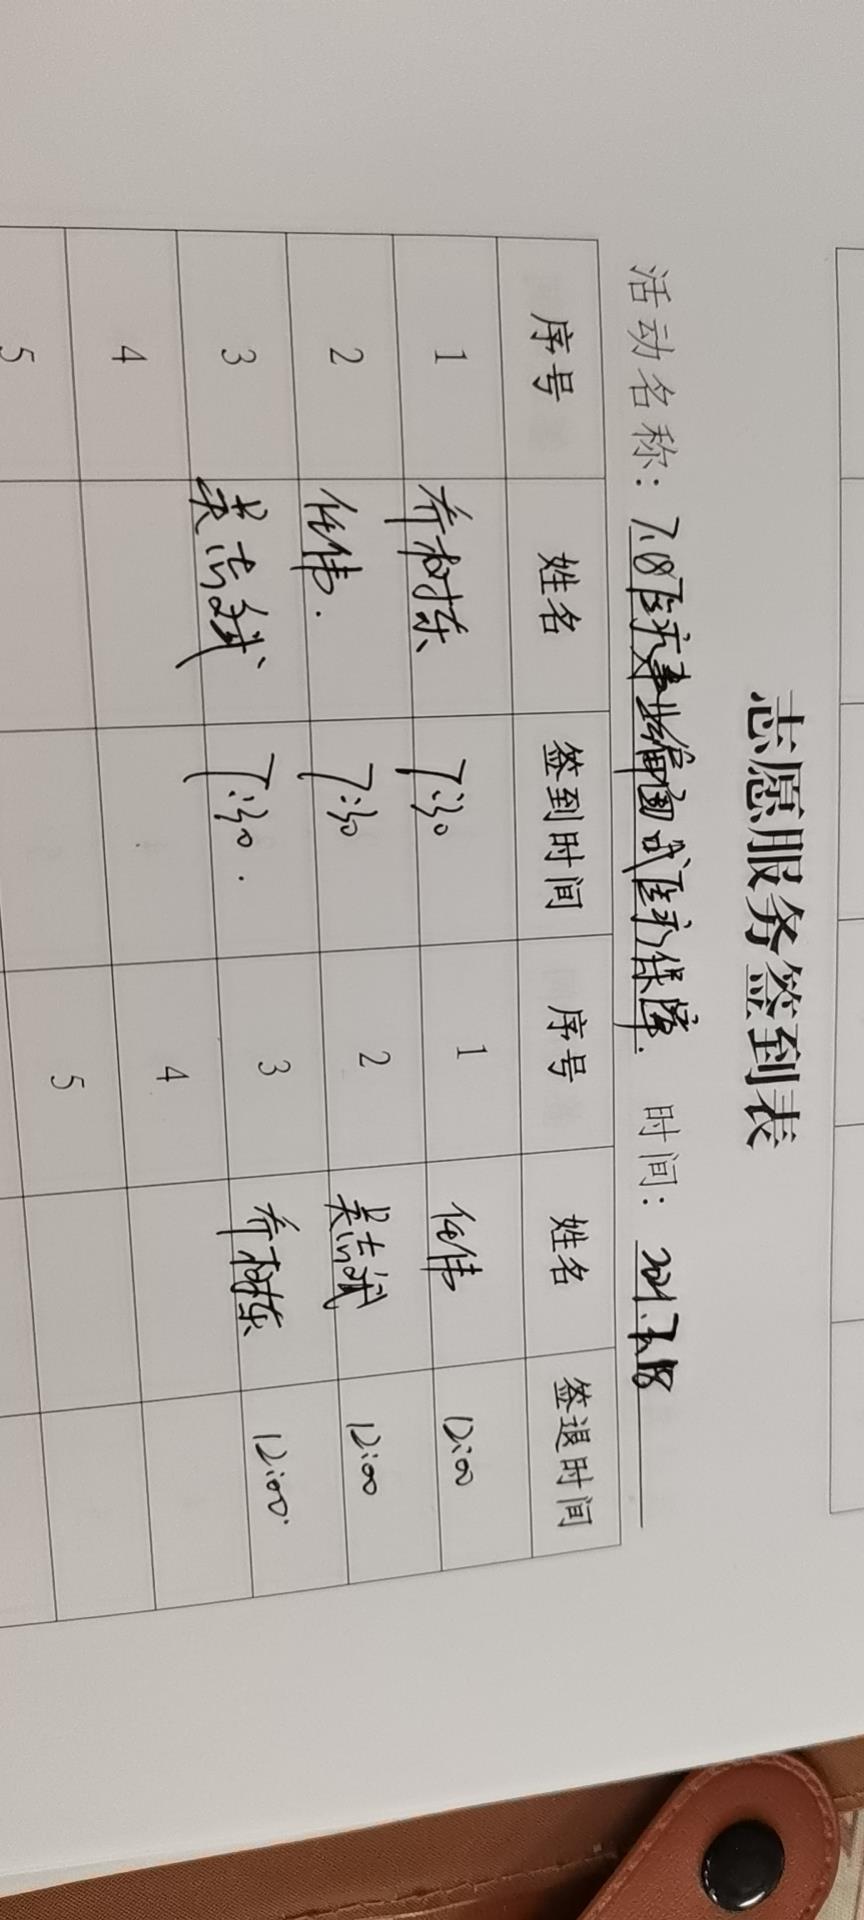 志愿服务签到表
活动名称：7.18医疗事业编面试医疗保障. 时间：2021.7.18
序号 姓名 签到时间 序号 姓名 签退时间
1 乔树东 7:30 1 任伟 12:00
2 任伟. 7:30 2 吴志斌 12:00
3 吴志斌 7:30. 3 乔树东 12:00.
4 4
5 5